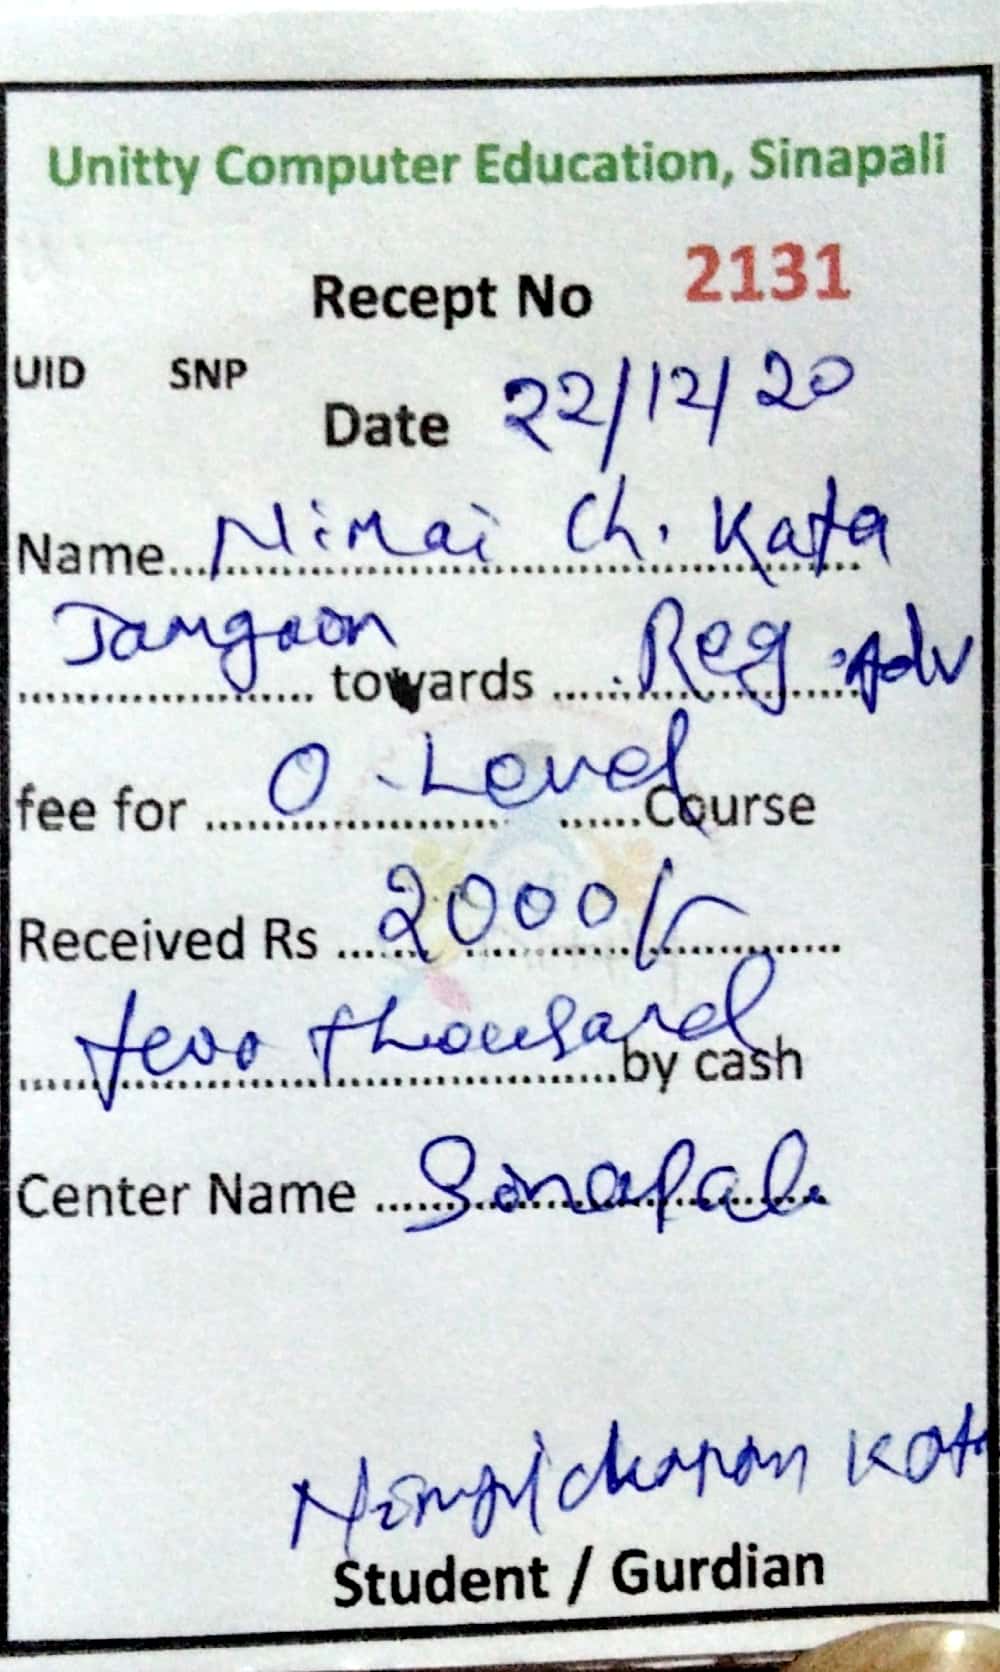 Unitty Computer Education, Sinapali
Recept No 2131
UID SNP
Date 22/12/20
Name... Nimai Ch. Kata
Jamgaon towards Reg. Adv
fee for O-Level Course
Received Rs 2000/-
two thousand by cash
Center Name Sinapali
Nimai charan Kata
Student / Gurdian